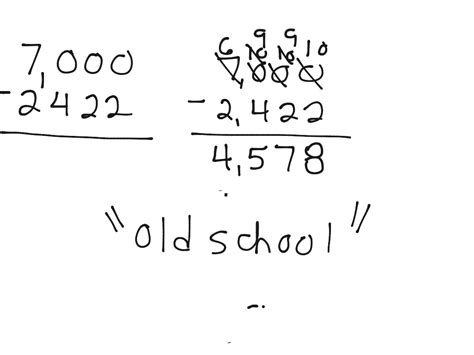 7,000
-2422
6 9 9 10
10 10
7,000
-2,422
4,578
"old school"